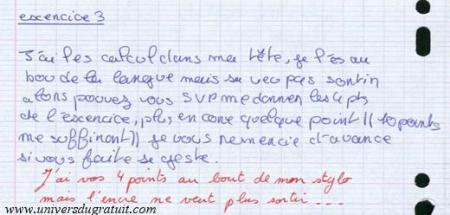 exercice 3
J'ai les calcul dans ma tête, je l'és au
bou de la langue mais sa veu pas sortir
alors pouvez vous SVP me donner les 4 pts
de l'exercice, plus encore quelque point || 10 points
me suffiront || je vous remercie d'avance
si vous faite se geste.
J'ai vos 4 points au bout de mon stylo
mais l'encre ne veut plus sortir ...
www.universdugratuit.com